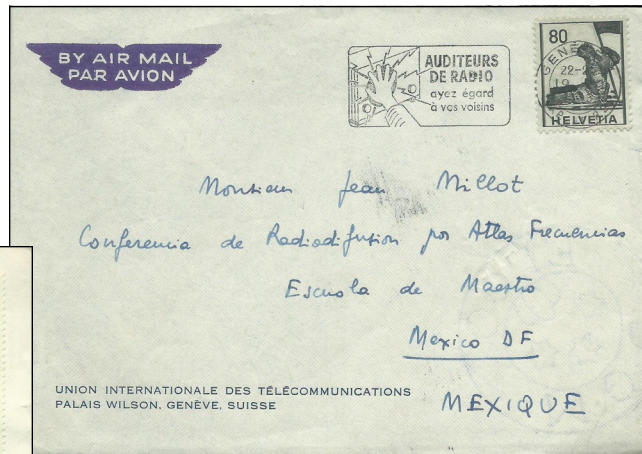 BY AIR MAIL
PAR AVION
AUDITEURS
DE RADIO
ayez égard
à vos voisins
80
HELVETIA
GENÈ
22-2
19
Monsieur Jean Millot
Conferencia de Radiodifusion por Altas Frecuencias
Escuola de Maestro
Mexico DF
MEXIQUE
UNION INTERNATIONALE DES TÉLÉCOMMUNICATIONS
PALAIS WILSON, GENÈVE, SUISSE